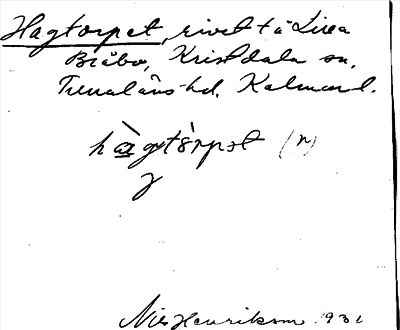 Hagtorpet, rivet t å Lilla
Bråbo, Kristdala sn,
Tunaläns hd. Kalmar l.
hàgtórpet (n)
Nils Henriksson 1931